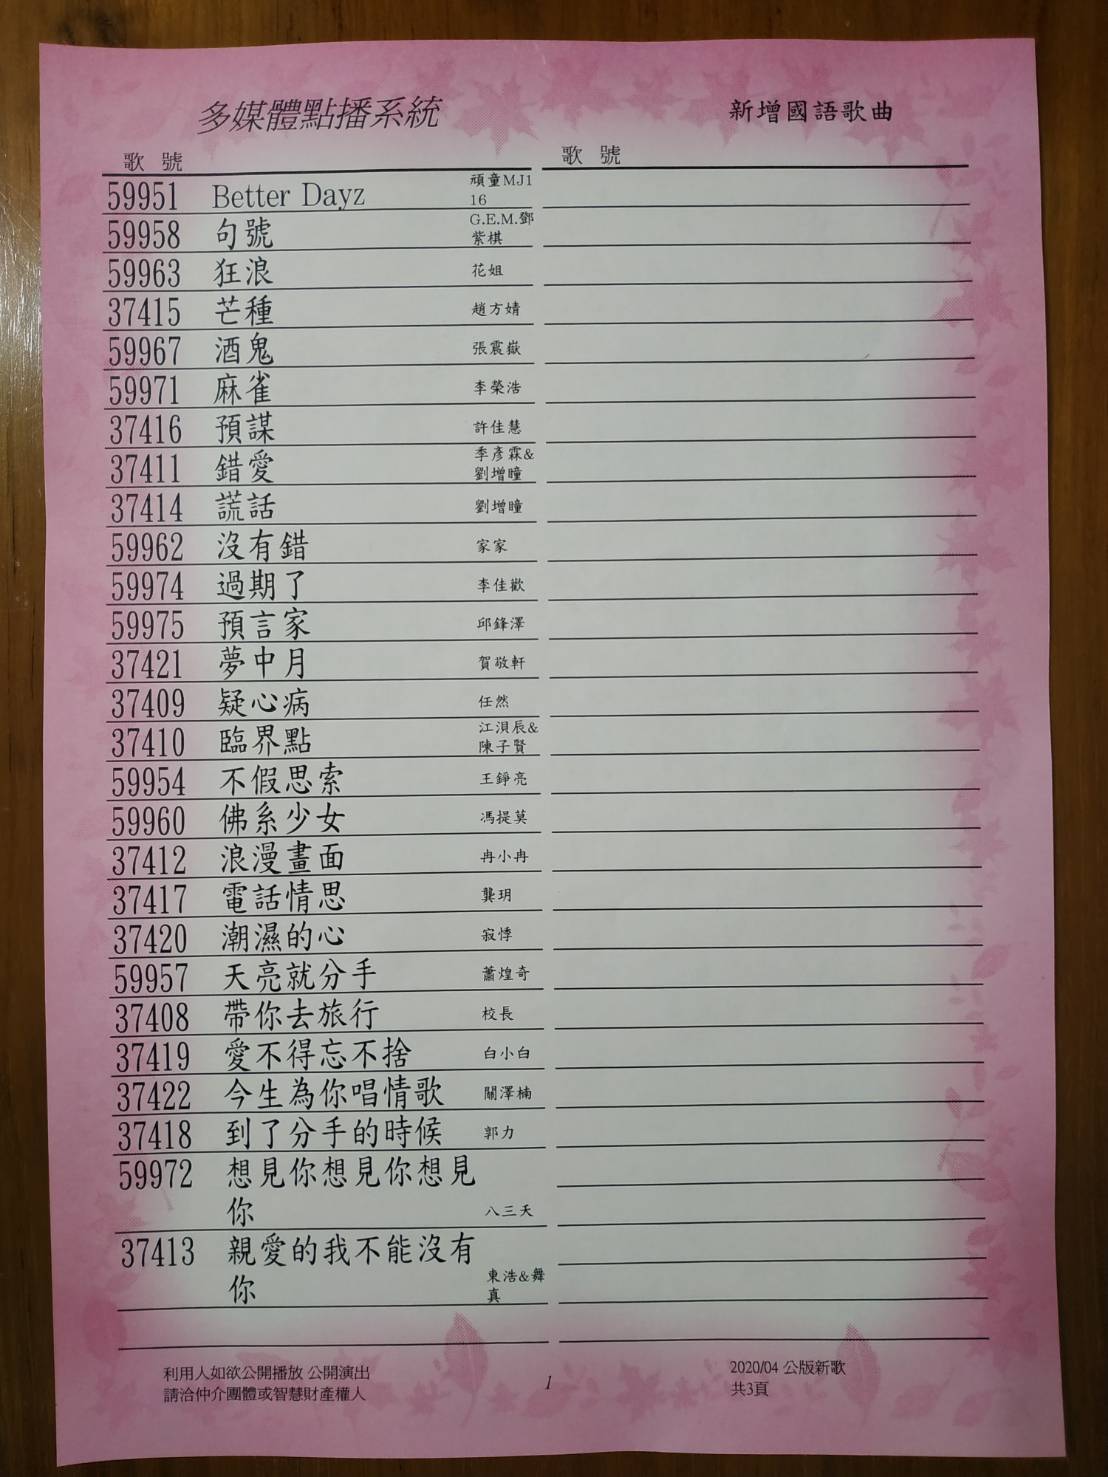 多媒體點播系統
新增國語歌曲
歌 號
歌 號
59951 Better Dayz 頑童MJ1
16
59958 句號 G.E.M.鄧
紫棋
59963 狂浪 花姐
37415 芒種 趙方婧
59967 酒鬼 張震嶽
59971 麻雀 李榮浩
37416 預謀 許佳慧
37411 錯愛 季彥霖&
劉增瞳
37414 謊話 劉增瞳
59962 沒有錯 家家
59974 過期了 李佳歡
59975 預言家 邱鋒澤
37421 夢中月 賀敬軒
37409 疑心病 任然
37410 臨界點 江浿辰&
陳子賢
59954 不假思索 王錚亮
59960 佛系少女 馮提莫
37412 浪漫畫面 冉小冉
37417 電話情思 龔玥
37420 潮濕的心 寂悸
59957 天亮就分手 蕭煌奇
37408 帶你去旅行 校長
37419 愛不得忘不捨 白小白
37422 今生為你唱情歌 關澤楠
37418 到了分手的時候 郭力
59972 想見你想見你想見
你 八三夭
37413 親愛的我不能沒有
你 東浩&舞
真
利用人如欲公開播放 公開演出
請洽仲介團體或智慧財產權人
1
2020/04 公版新歌
共3頁